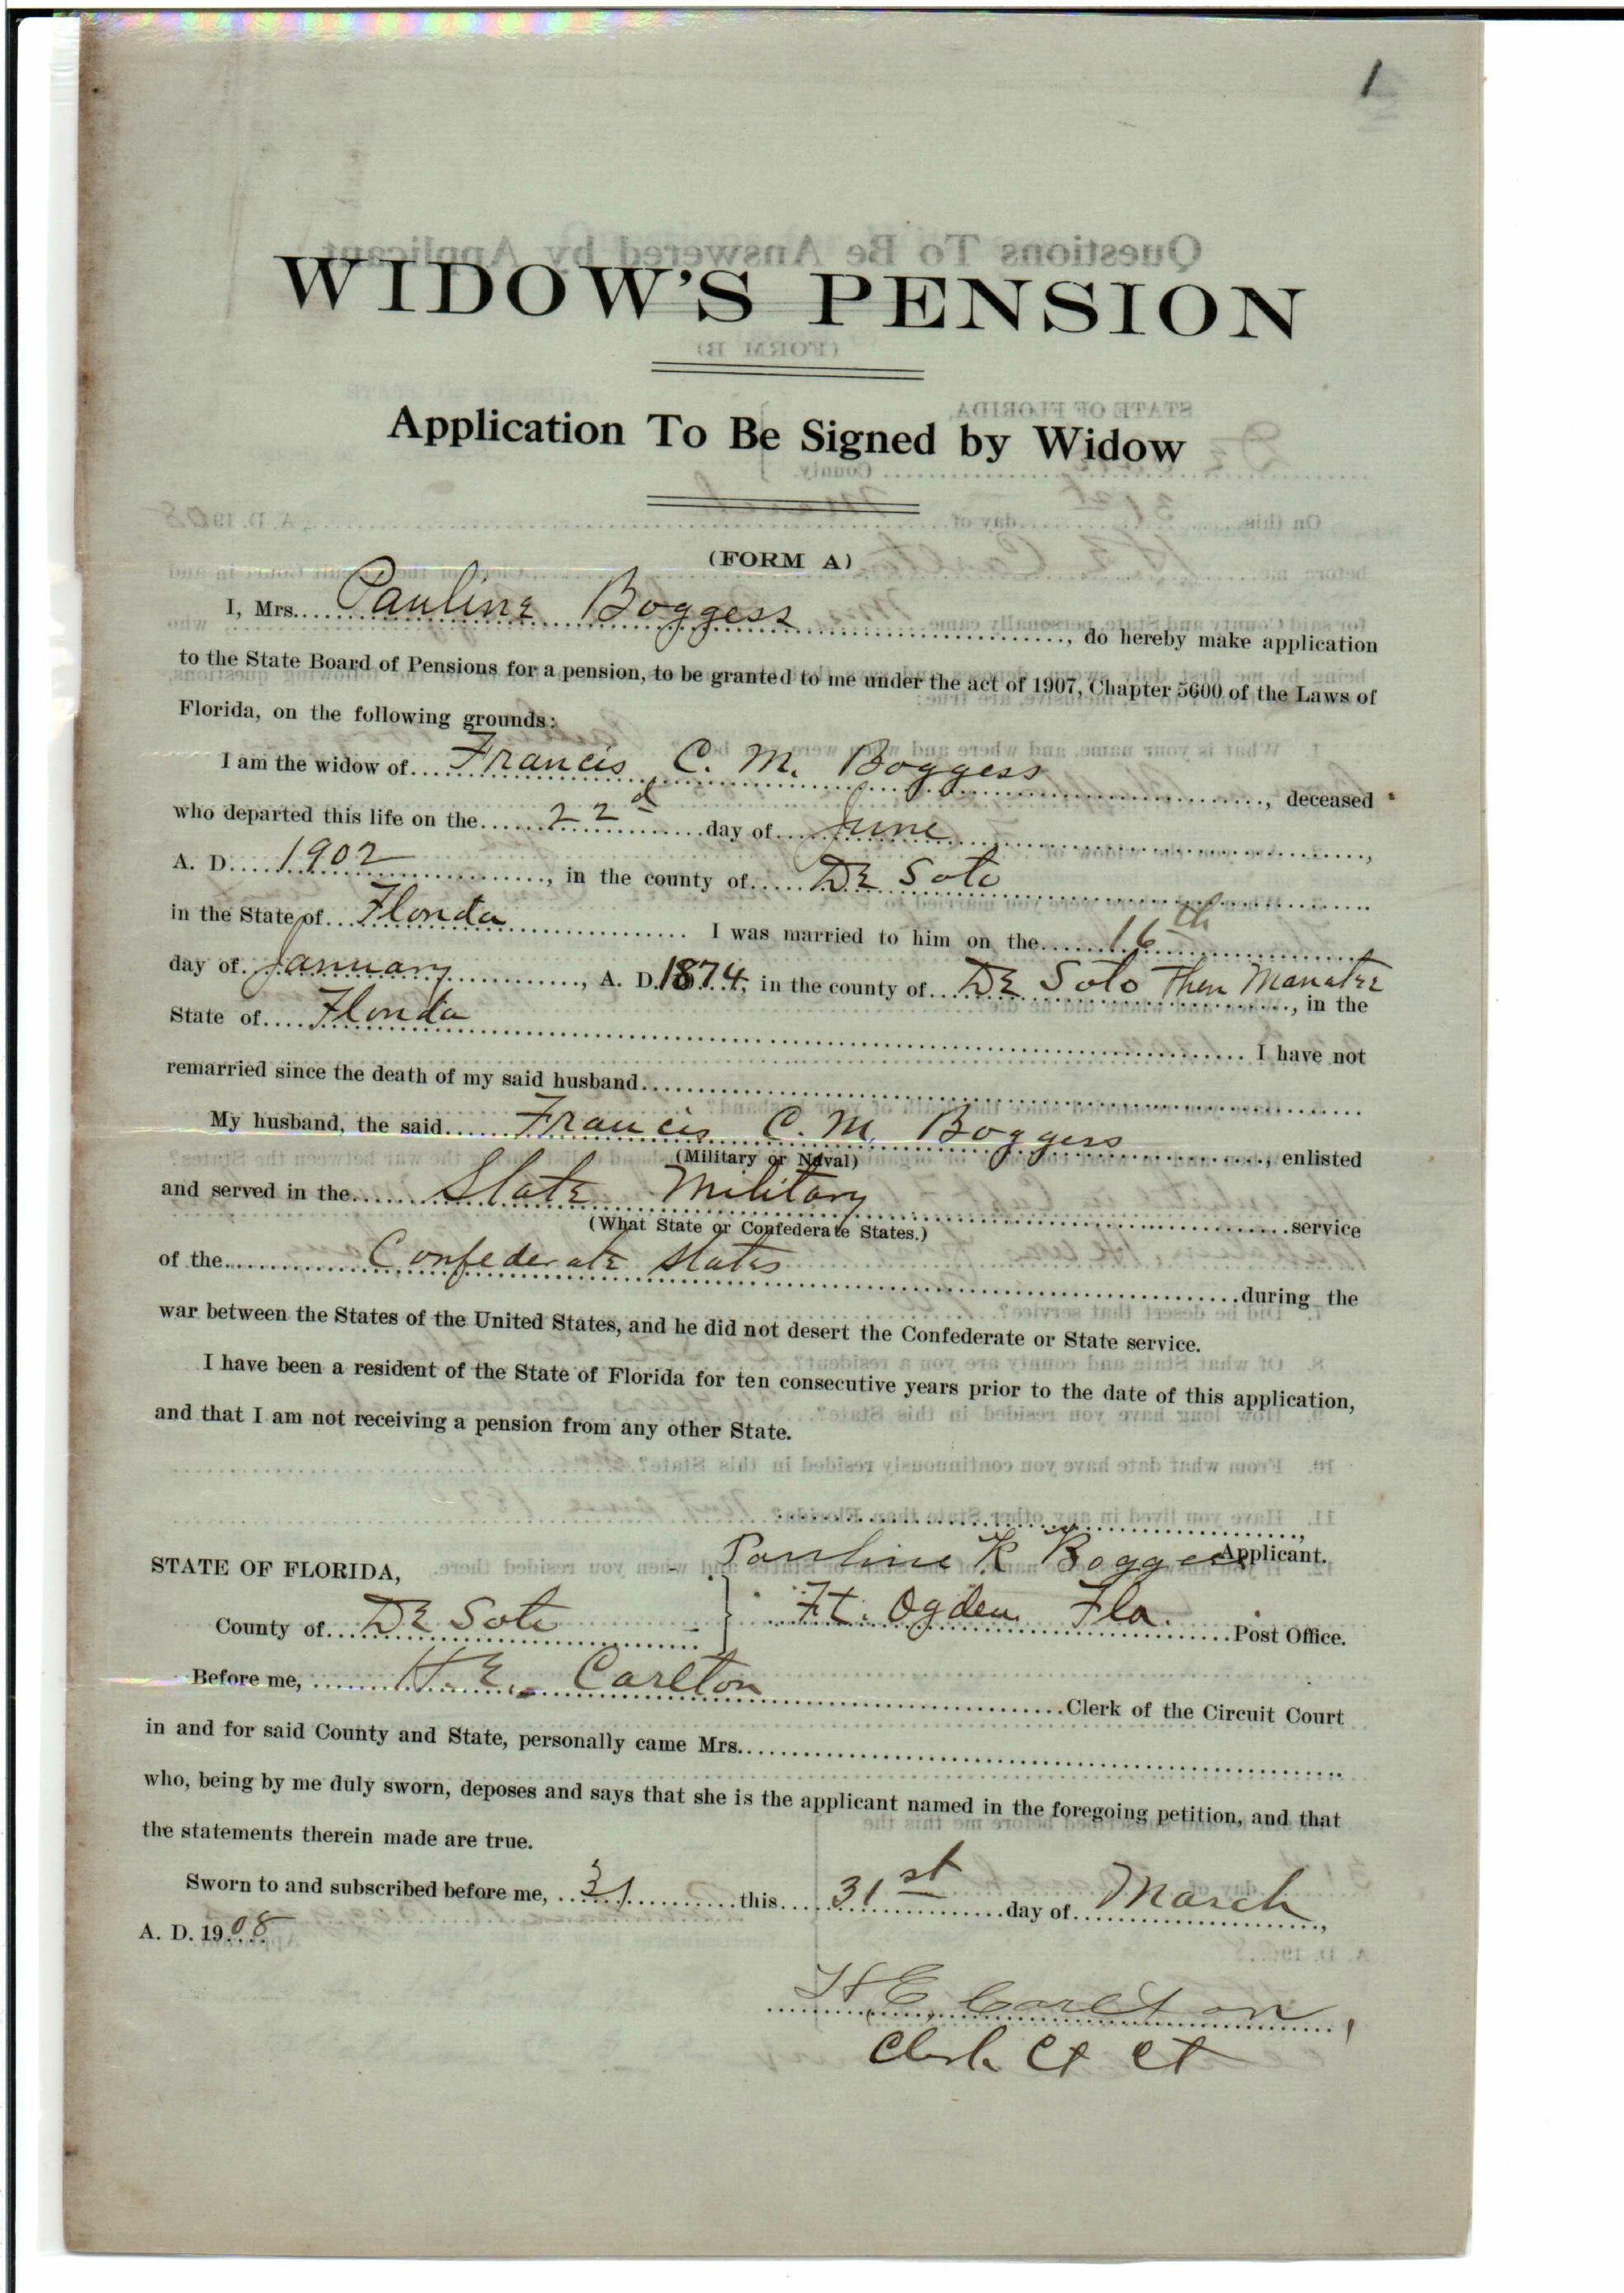 1
WIDOW'S PENSION
Application To Be Signed by Widow
(FORM A)
I, Mrs.... Pauline Boggess ..............., do hereby make application
to the State Board of Pensions for a pension, to be granted to me under the act of 1907, Chapter 5600 of the Laws of
Florida, on the following grounds:
I am the widow of... Francis C. M. Boggess ..............., deceased
who departed this life on the...... 22d ........day of.... June ...............,
A. D.... 1902 ..............., in the county of..... De Soto ...............
in the State of... Florida ............... I was married to him on the...... 16th ...............
day of. January ..............., A. D. 1874, in the county of... De Soto Then Manatee ........, in the
State of.... Florida ............... I have not
remarried since the death of my said husband...............
My husband, the said..... Francis C. M. Boggess ..............., enlisted
(Military or Naval)
and served in the..... State Military ...............service
(What State or Confederate States.)
of the............. Confederate States ...............during the
war between the States of the United States, and he did not desert the Confederate or State service.
I have been a resident of the State of Florida for ten consecutive years prior to the date of this application,
and that I am not receiving a pension from any other State.
Pauline R Boggess Applicant.
STATE OF FLORIDA,
County of... De Soto ............... } Ft. Ogden Fla. ........Post Office.
Before me, ........ H. E. Carlton ...............Clerk of the Circuit Court
in and for said County and State, personally came Mrs...............
who, being by me duly sworn, deposes and says that she is the applicant named in the foregoing petition, and that
the statements therein made are true.
Sworn to and subscribed before me, ... 31 ............this.... 31st ...............day of... March ........,
A. D. 1908
H E Carlton,
Clerk Ct Ct